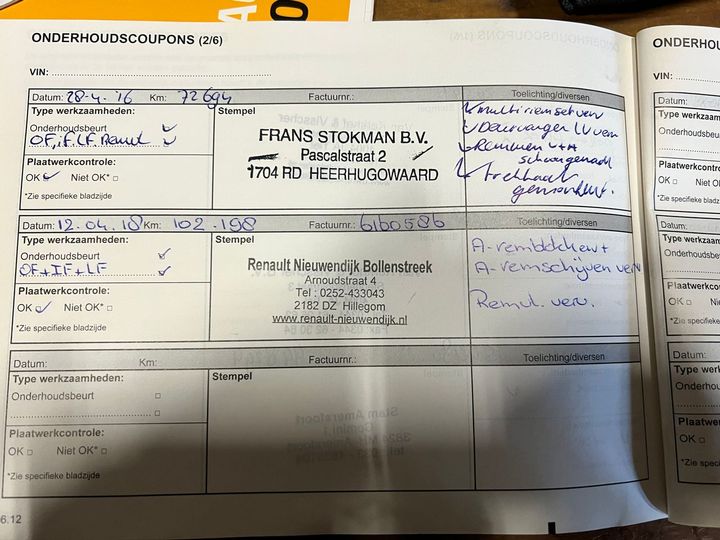 ONDERHOUDSCOUPONS (2/6)
VIN:
Datum: 28-4-'16 Km: 72694 Factuurnr.: Toelichting/diversen
Type werkzaamheden:
Onderhoudsbeurt
OF, iF, LF, Remvl
Plaatwerkcontrole:
OK Niet OK*
*Zie specifieke bladzijde
Stempel
FRANS STOKMAN B.V.
Pascalstraat 2
1704 RD HEERHUGOWAARD
multiriemset verv
Deurvanger LV verv
Remmen v+A
schoongemaakt
trekhaak
gemonteerd.
Datum: 12.04.18 Km: 102.198 Factuurnr.: 6160586 Toelichting/diversen
Type werkzaamheden:
Onderhoudsbeurt
OF+IF+LF
Plaatwerkcontrole:
OK Niet OK*
*Zie specifieke bladzijde
Stempel
Renault Nieuwendijk Bollenstreek
Arnoudstraat 4
Tel : 0252-433043
2182 DZ Hillegom
www.renault-nieuwendijk.nl
A-remblokken+
A-remschijven verv
Remvl. verv.
Datum: Km: Factuurnr.: Toelichting/diversen
Type werkzaamheden:
Onderhoudsbeurt
Plaatwerkcontrole:
OK Niet OK*
*Zie specifieke bladzijde
Stempel
6.12
ONDERHOU
VIN:
Datum:
Type werkz
Onderhoudsb
Plaatwerkco
OK
*Zie specifi
Datum:
Type werk
Onderhoud
Plaatwerk
OK
*Zie specif
Datum:
Type wer
Onderhou
Plaatwer
OK
*Zie spec